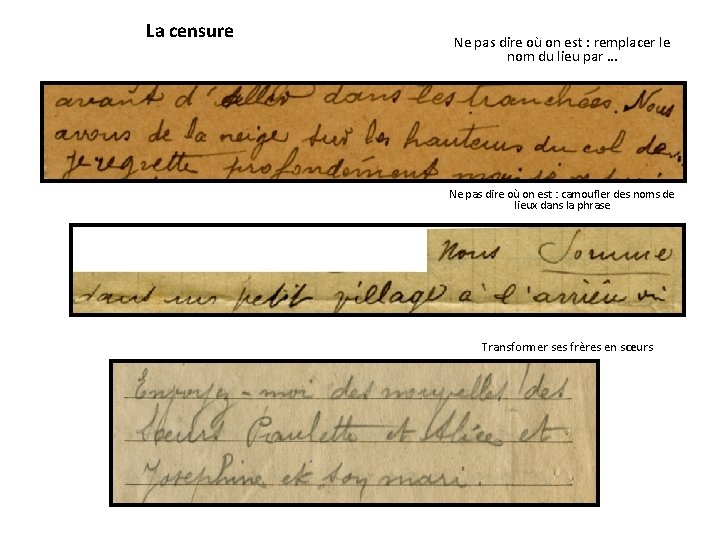 La censure
Ne pas dire où on est : remplacer le
nom du lieu par ...
avant d'aller dans les tranchées. Nous
avons de la neige sur les hauteurs du col de
je regrette profondément
Ne pas dire où on est : camoufler des noms de
lieux dans la phrase
Nous Somme
dans un petit village à l'arrière
Transformer ses frères en sœurs
Envoyez-moi des nouvelles des
sœurs Paulette et Alice et
Josephine et son mari.